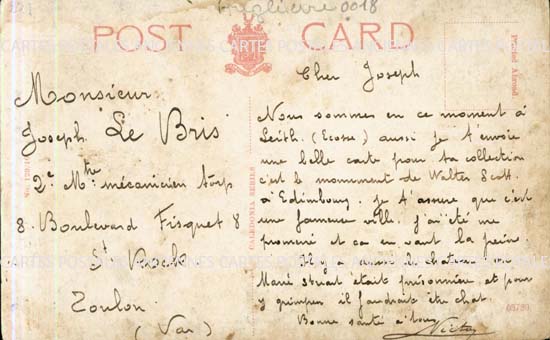 Angleterre 0018
POST CARD
Printed Abroad
Monsieur
Joseph Le Bris
2e Mtre mécanicien torp
8. Boulevard Frisquet 8
St Roch.
Toulon.
(Var)
CALEDONIA SERIES
Cher Joseph
Nous sommes en ce moment à
Leith. (Ecosse) aussi je t'envoie
une belle carte pour ta collection
c'est le monument de Walter Scott.
à Edimbourg. je t'assure que c'est
une fameuse ville. j'ai été me
promené et ca en vaut la peine.
Il y a aussi le chateau ou
Marie stuart était prisonnière. et pour
y grimper il faudrait être chat.
Bonne santé à tous
Victor
CARTES POSTALES ANCIENNES